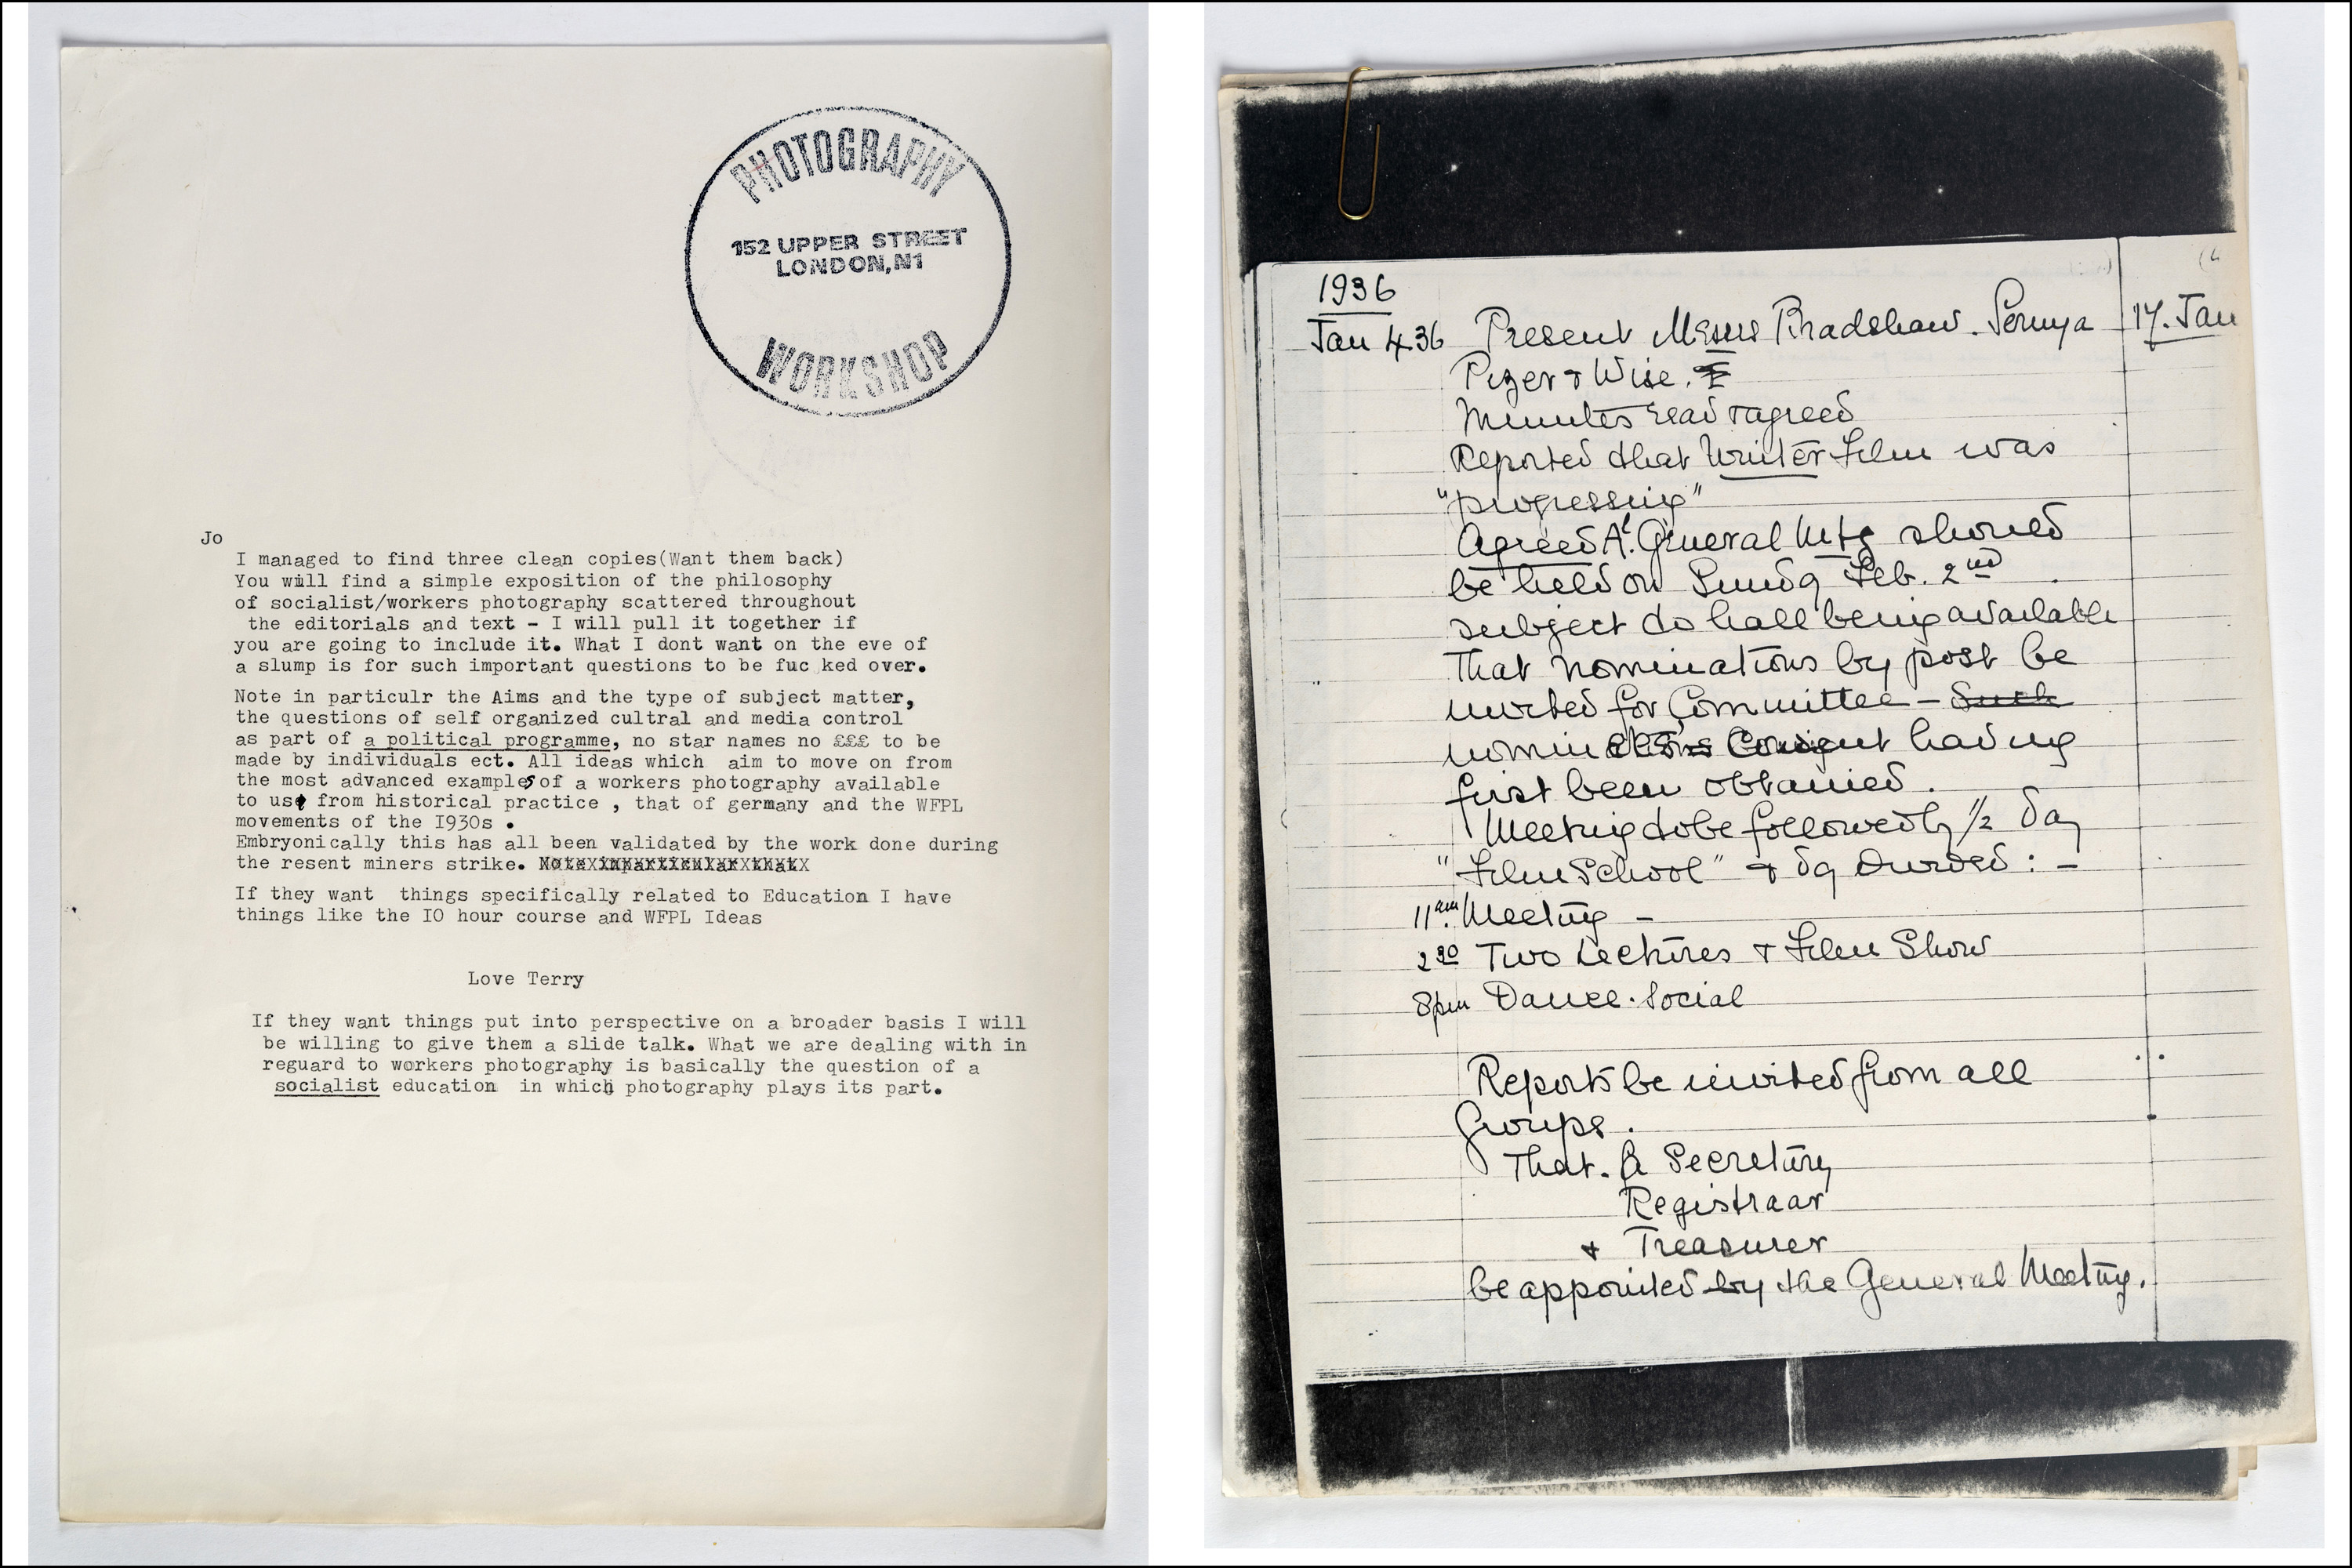 PHOTOGRAPHY
152 UPPER STREET
LONDON,N1
WORKSHOP
Jo
I managed to find three clean copies(Want them back)
You will find a simple exposition of the philosophy
of socialist/workers photography scattered throughout
the editorials and text - I will pull it together if
you are going to include it. What I dont want on the eve of
a slump is for such important questions to be fuc ked over.
Note in particulr the Aims and the type of subject matter,
the questions of self organized cultral and media control
as part of a political programme, no star names no £££ to be
made by individuals ect. All ideas which aim to move on from
the most advanced examples of a workers photography available
to us from historical practice , that of germany and the WFPL
movements of the I930s .
Embryonically this has all been validated by the work done during
the resent miners strike. Note in particular that
If they want things specifically related to Education I have
things like the IO hour course and WFPL Ideas
Love Terry
If they want things put into perspective on a broader basis I will
be willing to give them a slide talk. What we are dealing with in
reguard to workers photography is basically the question of a
socialist education in which photography plays its part.
1936
Jan 4.36 Present Messrs Bradshaw.
& Wise.
Minutes read & agreed
Reported that Winter Film was
"progressing"
Agreed Al General Mtg should
be held on Sundy Feb. 2nd
subject to hall being available
That nominations by post be
invited for Committee - Such
nominations Consent having
first been obtained.
Meeting to be followed by 1/2 day
"Film School" & dy divided : -
11am. Meeting -
2 30 Two Lectures & Film Show
8pm Dance. Social
Reports be invited from all
Groups.
That. A Secretary
Registraar
& Treasurer
be appointed by the General Meeting.
17. Jan